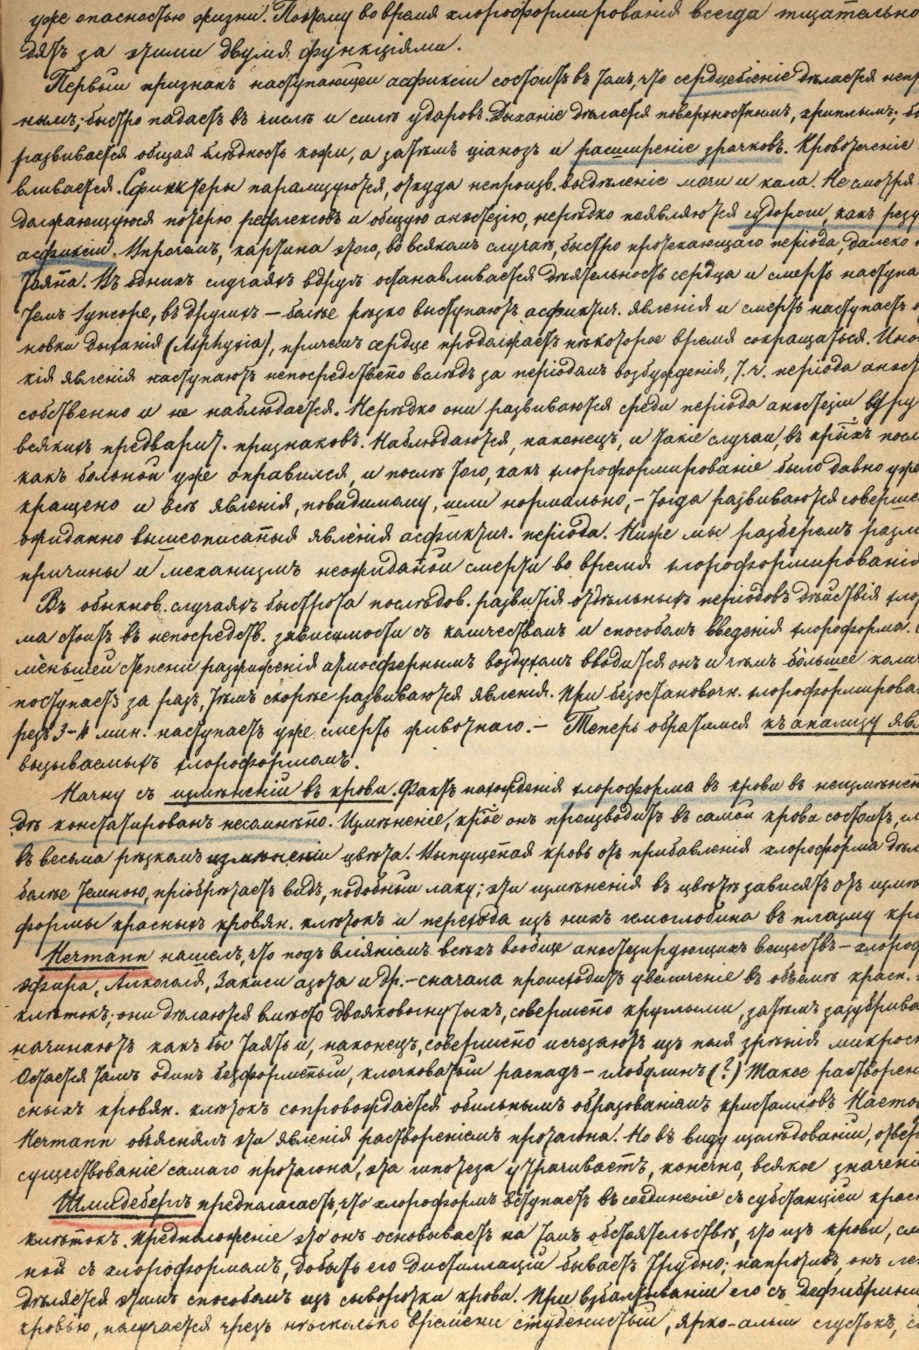 уже опасностью жизни. Поэтому во время хлороформированія всегда тщательно
дятъ за этими двумя функціями.
Первый признакъ наступающей асфиксіи состоитъ въ томъ, что сердцебіеніе дѣлается непр
нымъ, быстро падаетъ въ числѣ и силѣ ударовъ. Дыханіе дѣлается поверхностнымъ, хриплымъ; бы
развивается общая блѣдность кожи, а затѣмъ ціанозъ и расширеніе зрачковъ. Кровотеченіе
вливается. Сфинктеры парализуются, откуда непроизв. выдѣленіе мочи и кала. Не смотря
должающуюся потерю рефлексовъ и общую анестезію, нерѣдко появляются судороги какъ резу
асфиксіи. Впрочемъ, картина этого, во всякомъ случаѣ, быстро протекающаго періода, далеко н
тоянна. Въ однихъ случаяхъ вдругъ останавливается дѣятельность сердца и смерть наступа
темъ Syncope, въ другихъ — болѣе рѣзко выступаютъ асфиктич. явленія и смерть наступаетъ о
новки дыханія (Asphyxia), причемъ сердце продолжаетъ нѣкоторое время сокращаться. Иног
кія явленія наступаютъ непосредственно вслѣдъ за періодомъ возбужденія, т.ч. періода анест
собственно и не наблюдается. Нерѣдко они развиваются среди періода анестезіи вдру
всякихъ предварит. признаковъ. Наблюдаются, наконецъ, и такіе случаи, въ крыхъ посл
какъ больной уже оправился, и послѣ того, какъ хлороформированіе было давно уже
кращено и всѣ явленія, повидимому, шли нормально, — тогда развиваются соверше
ожиданно вышеописанныя явленія асфиктич. періода. Ниже мы разберемъ разл
причины и механизмъ неожиданной смерти во время хлороформированія
Въ обыкнов. случаяхъ быстрота послѣдов. развитія отдѣльныхъ періодовъ дѣйствія хло
ма стоитъ въ непосредств. зависимости съ количествомъ и способомъ введенія хлороформа.
меньшей степени разжиженія атмосфернымъ воздухомъ вводится онъ и чѣмъ большее коли
поступаетъ за разъ, тѣмъ скорѣе развиваются явленія. При безостановочн. хлороформирова
резъ 3-4 мин. наступаетъ уже смерть животнаго. — Теперь обратимся къ анализу явл
вызываемыхъ хлороформомъ.
Начну съ измѣненій въ крови. Фактъ нахожденія хлороформа въ крови въ неизмѣнен
дѣ констатированъ несомнѣнно. Измѣненіе, крое онъ производитъ въ самой крови состоитъ, гл
въ весьма рѣзкомъ измѣненіи цвѣта. Выпущенная кровь отъ прибавленія хлороформа дѣл
болѣе темною, пріобрѣтаетъ видъ, подобный лаку; эти измѣненія въ цвѣтѣ зависятъ отъ измѣн
формы красныхъ кровян. клѣтокъ и перехода изъ нихъ гемоглобина въ плазму кро
Hermann нашелъ, что подъ вліяніемъ всѣхъ вообще анестезирующихъ веществъ — хлороф
эфира, Алкоголя, Закиси азота и др. — сначала происходитъ увеличеніе въ объемѣ красн.
клѣтокъ; они дѣлаются вмѣсто двояковогнутыхъ, совершенно круглыми, затѣмъ зазубрива
начинаютъ какъ бы таять и, наконецъ, совершенно исчезаютъ изъ поля зрѣнія микрос
Остается тамъ одинъ безформенный, клочковатый распадъ — глобулинъ (?) Такое растворен
сныхъ кровян. клѣтокъ сопровождается обильнымъ образованіемъ кристалловъ. Насто
Hermann объяснялъ эти явленія раствореніемъ протагона. Но въ виду изслѣдованій, отвер
существованіе самаго протагона, эта гипотеза утрачиваетъ, конечно, всякое значені
Шмидебергъ предполагаетъ, что хлороформъ вступаетъ въ соединеніе съ субстанціей крас
клѣтокъ. Предположеніе это онъ основываетъ на томъ обстоятельствѣ, что изъ крови, см
ной съ хлороформомъ, добыть его дистилляціей бываетъ трудно; напротивъ, онъ ле
дѣляется этимъ способомъ изъ сыворотки крови. При взбалтываніи его съ дефибрин
кровью, получается чрезъ нѣсколько времени студенистый, ярко-алый сгустокъ,